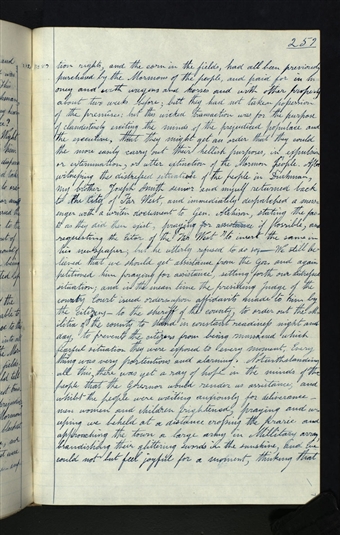 257
tion rights, and the corn in the fields, had all been previously
purchased by the Mormons of the people, and paid for in mo-
ney and with wagons and horses and with other property
about two weeks before; but they had not taken possession
of the premises; but this wicked transaction was for the purpose
of clandestinely exciting the minds of the prejudiced populace and
the executive, that they might get an order that they could
the more easily carry out their hellish purposes, in expulsion
or extermination, or utter extinction of the Mormon people. After
witnessing the distressed situation of the people in Diahman,
my brother Joseph Smith senior and myself returned back
to the City of Far West, and immediately dispatched a mess-
enger with a written document to Gen. Atchison, stating the fa-
cts as they did then exist, praying for assistance if possible, and
requesting the editor of the "Far West" to insert the same in
his newspaper, but he utterly refused to do so. We still be-
lieved that we should get assistance from the Gov. and again
petitioned him praying for assistance, setting forth our distressed
situation; and in the mean time the presiding judge of the
county court issued orders upon affidavits made to him by
the citizens to the sheriff of the county, to order out the mi-
litia of the county to stand in constant readiness night and
day, to prevent the citizens from being massacred which
fearful situation they were exposed to every moment. Every
thing was very portentous and alarming. Notwithstanding
all this, there was yet a ray of hope in the minds of the
people that the Governor would render us assistance, and
whilst the people were waiting anxiously for deliverance
men women and children frightened, praying and we
eping we beheld at a distance crossing the prairie and
approaching the town a large army in Military array
brandishing their glittering swords in the sunshine, and we
could not but feel joyful for a moment, thinking that